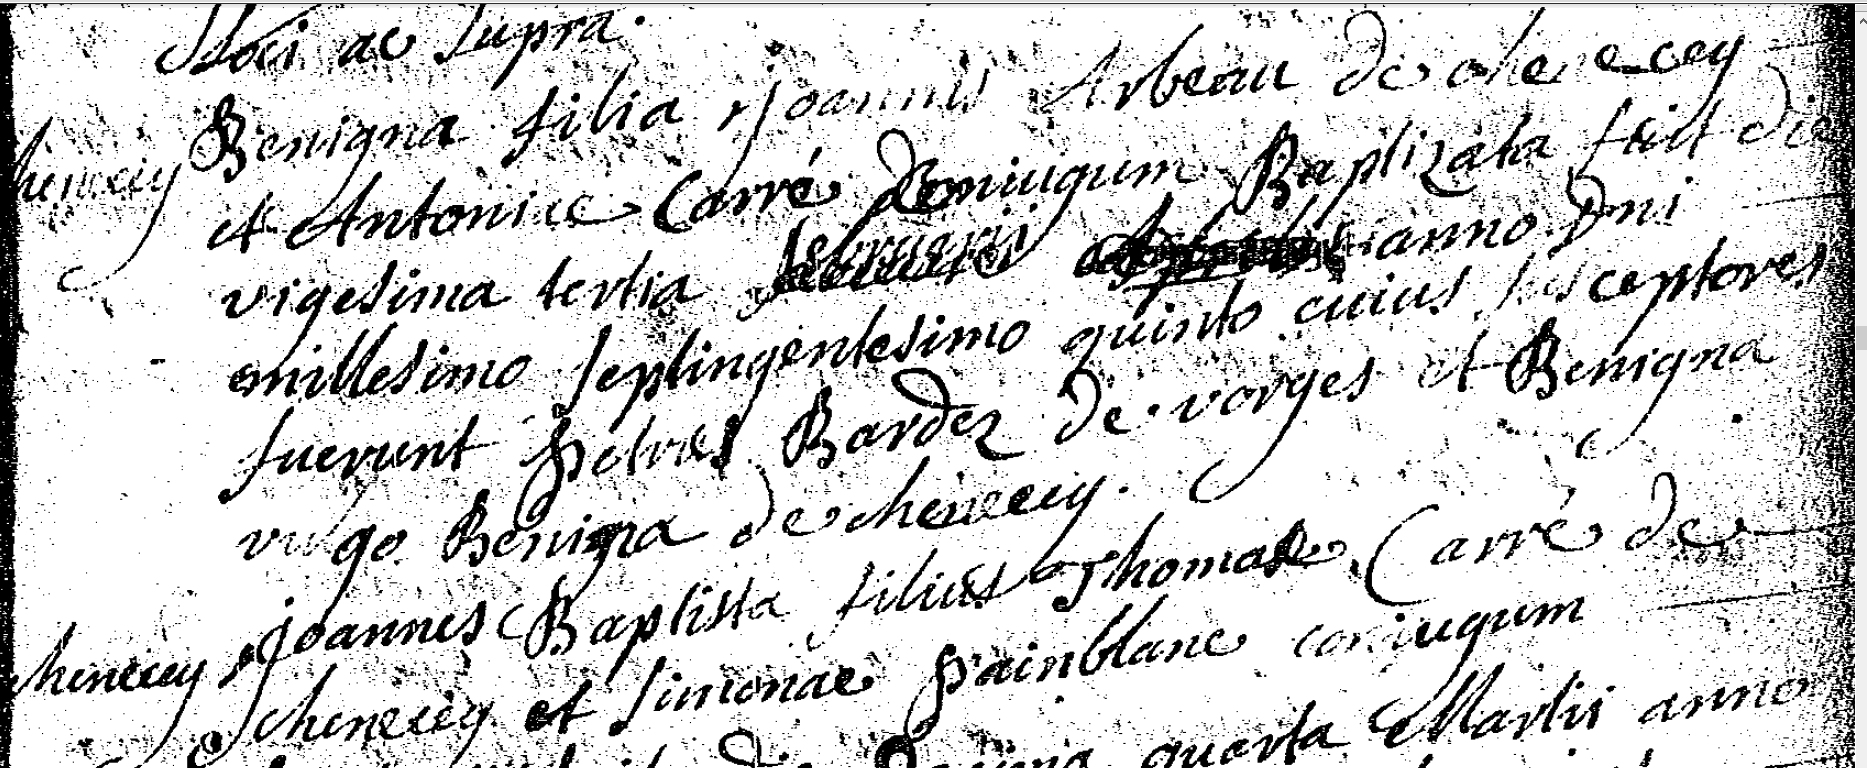 loci ac supra.
Benigna filia joannis Arbeau de chenecey
chenecey
et Antoniae Carré coniugum Baptizata fuit die
vigesima tertia februarii anno Dni
millesimo septingentesimo quinto cuius susceptores
fuerunt petrus Bardez de vorges et Benigna
vulgo Benigna de chenecey.
joannes Baptista filius Thomae Carré de
chenecey
chenecey et simonae painblanc coniugum
die quarta Martii anno